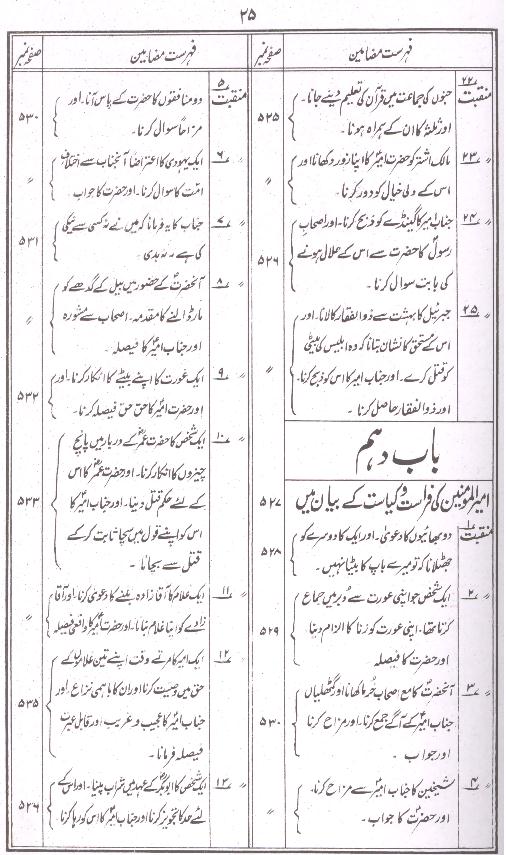 ۲۵
فہرست مضامین
صفحہ نمبر
منقبت ۲۲
جنوں کی جماعت میں قرآن کی تعلیم دینے جانا۔
اور ملائکہ کا ان کے ہمراہ ہونا۔
۵۲۵
〃 ۲۳
مالک اشتر کو حضرت امیرؑ کا اپنا زور دکھانا اور
اس کے دلی خیال کو دور کرنا۔
〃
〃 ۲۴
جناب امیر کا گینڈے کو ذبح کرنا۔ اور اصحاب
رسولؐ کا حضرت سے اس کے حلال ہونے
کی بابت سوال کرنا۔
۵۲۶
〃 ۲۵
جبرئیل کا بہشت سے ذوالفقار کا لانا۔ اور
اس کے مستحق کا نشان بتانا کہ وہ ابلیس کی بیٹی
کو قتل کرے۔ اور جناب امیر کا اس کو ذبح کرنا۔
اور ذوالفقار حاصل کرنا۔
〃
باب دہم
امیر المومنین کی فراست و کیاست کے بیان میں
۵۲۷
منقبت ۱
دو بھائیوں کا دعویٰ۔ اور ایک کا دوسرے کو
جھٹلانا کہ تو میرے باپ کا بیٹا نہیں۔
۵۲۸
〃 ۲
ایک شخص جو اپنی عورت سے دُبر میں جماع
کرتا تھا۔ اپنی عورت کو زنا کا الزام دینا
اور حضرت کا فیصلہ
۵۲۹
〃 ۳
آنحضرتؐ کا مع اصحاب خرما کھانا اور گٹھلیاں
جناب امیرؑ کے آگے جمع کرنا۔ اور مزاح کرنا
اور جواب۔
۵۳۰
〃 ۴
شیخین کا جناب امیرؑ سے مزاح کرنا۔
اور حضرتؑ کا جواب۔
فہرست مضامین
صفحہ نمبر
منقبت ۵
دو منافقوں کا حضرت کے پاس آنا۔ اور
مزاحاً سوال کرنا۔
۵۳۰
〃 ۶
ایک یہودی کا اعتراضاً آنجناب سے اختلاف
امت کا سوال کرنا۔ اور حضرت کا جواب۔
〃
〃 ۷
جناب کا یہ فرمانا کہ میں نے نہ کسی سے نیکی
کی ہے۔ نہ بدی۔
۵۳۱
〃 ۸
آنحضرتؐ کے حضور میں بیل کے گدھے کو
مار ڈالنے کا مقدمہ۔ اصحاب سے مشورہ
اور جناب امیرؑ کا فیصلہ۔
〃
〃 ۹
ایک عورت کا اپنے بیٹے کا انکار کرنا۔ اور
اور حضرت امیرؑ کا حق حق فیصلہ کرنا۔
۵۳۲
〃 ۱۰
ایک شخص کا حضرت عمرؓ کے دربار میں پانچ
چیزوں کا انکار کرنا۔ اور حضرت عمرؓ کا اس
کے لئے حکم قتل دینا۔ اور جناب امیرؑ کا
اس کو اپنے قول میں سچا ثابت کرکے
قتل سے بچانا۔
۵۳۳
〃 ۱۱
ایک غلام کا آقا زادہ بننے کا دعویٰ کرنا۔ اور آقا
زادے کو اپنا غلام بتانا۔ اور حضرت امیرؑ کا واقعی فیصلہ
〃
〃 ۱۲
ایک امیر کا مرتے وقت اپنے تین غلاموں کے
حق میں وصیت کرنا اور ان کا باہمی نزاع۔ اور
جناب امیرؑ کا عجیب و غریب اور قابل عبرت
فیصلہ فرمانا۔
۵۳۵
〃 ۱۳
ایک شخص کا ابوبکرؓ کے عہد میں شراب پینا۔ اور اس کے
لئے حد کا تجویز کرنا اور جناب امیرؑ کا اس کو رہا کرنا۔
۵۲۶